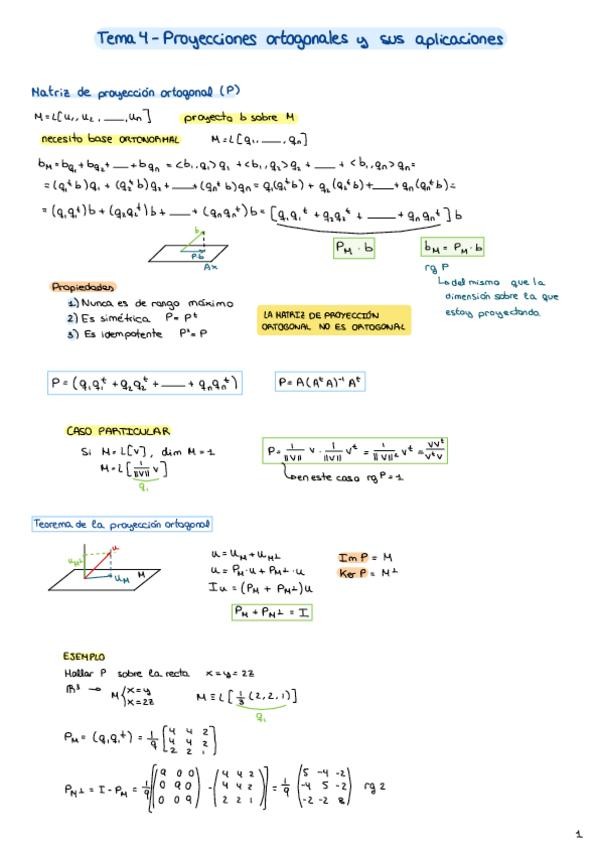 Tema 4 - Proyecciones ortogonales y sus aplicaciones
Matriz de proyección ortogonal (P)
M = L[u₁, u₂, ___, uₙ] proyecto b sobre M
necesito base ORTONORMAL M = L[q₁, ___, qₙ]
b_M = bq₁ + bq₂ + ___ + bqₙ = <b₁, q₁> q₁ + <b₁, q₂> q₂ + ___ + <b₁, qₙ> qₙ =
= (q₁ᵗb)q₁ + (q₂ᵗb)q₂ + ___ + (qₙᵗb)qₙ = q₁(q₁ᵗb) + q₂(q₂ᵗb) + ___ + qₙ(qₙᵗb) =
= (q₁q₁ᵗ)b + (q₂q₂ᵗ)b + ___ + (qₙqₙᵗ)b = [q₁q₁ᵗ + q₂q₂ᵗ + ___ + qₙqₙᵗ] b
b
Pb
Ax
P_M · b
b_M = P_M · b
rg P
del mismo que la
dimensión sobre la que
estoy proyectando
Propiedades
1) Nunca es de rango máximo
2) Es simétrica P = Pᵗ
3) Es idempotente P² = P
LA MATRIZ DE PROYECCIÓN
ORTOGONAL NO ES ORTOGONAL
P = (q₁q₁ᵗ + q₂q₂ᵗ + ___ + qₙqₙᵗ) P = A(AᵗA)⁻¹Aᵗ
CASO PARTICULAR
Si M = L[v], dim M = 1
M = L[1/||v|| v]
q₁
P = 1/||v|| v · 1/||v|| vᵗ = 1/||v||² v vᵗ = vvᵗ/vᵗv
en este caso rg P = 1
Teorema de la proyección ortogonal
u_M⊥ u
u_M M
u = u_M + u_M⊥
u = P_M · u + P_M⊥ · u
I u = (P_M + P_M⊥)u
P_M + P_M⊥ = I
Im P = M
Ker P = M⊥
EJEMPLO
Hallar P sobre la recta x = y = 2z
ℝ³ → M { x = y
x = 2z
M ≡ L[1/3 (2, 2, 1)]
q₁
P_M = (q₁q₁ᵗ) = 1/9 [4 4 2
4 4 2
2 2 1]
P_M⊥ = I - P_M = 1/9 [(9 0 0
0 9 0
0 0 9) - (4 4 2
4 4 2
2 2 1)] = 1/9 (5 -4 -2
-4 5 -2
-2 -2 8) rg 2
1